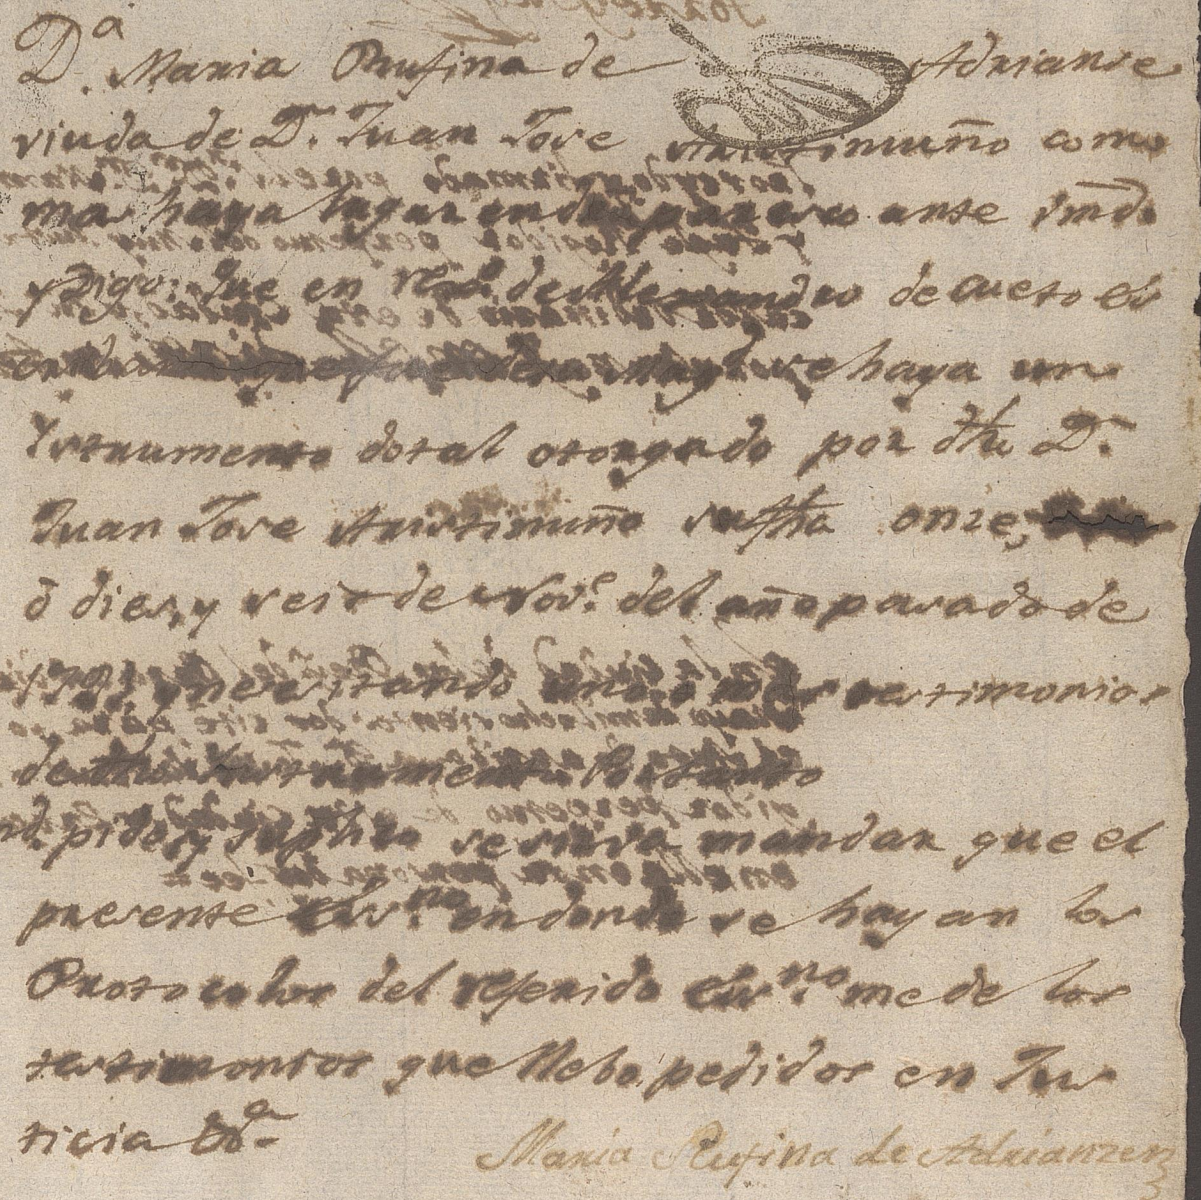 Dª Maria Rufina de Adrianse
viuda de Dn. Juan Jose Aristimuño como
mas haya lugar en dro paresco ante vmd.
y Digo: Que en rexo. de Alexandro de Cueto es
que fue se haya un
Ystrumento dotal otorgado por dho Dn.
Juan Jose Aristimuño su fha onze,
ô dies, y seis de Nove. del año pasado de
y nesesitando uno, o dos testimonios
de dho Ynstrumento Portanto
pido, y suplico se sirva mandar que el
presente essno. en donde se hayan los
Protocolos del referido essno. me de los
testimonios que llebo pedidos en Jus
ticia &ª
Maria Rufina de Adrianzen